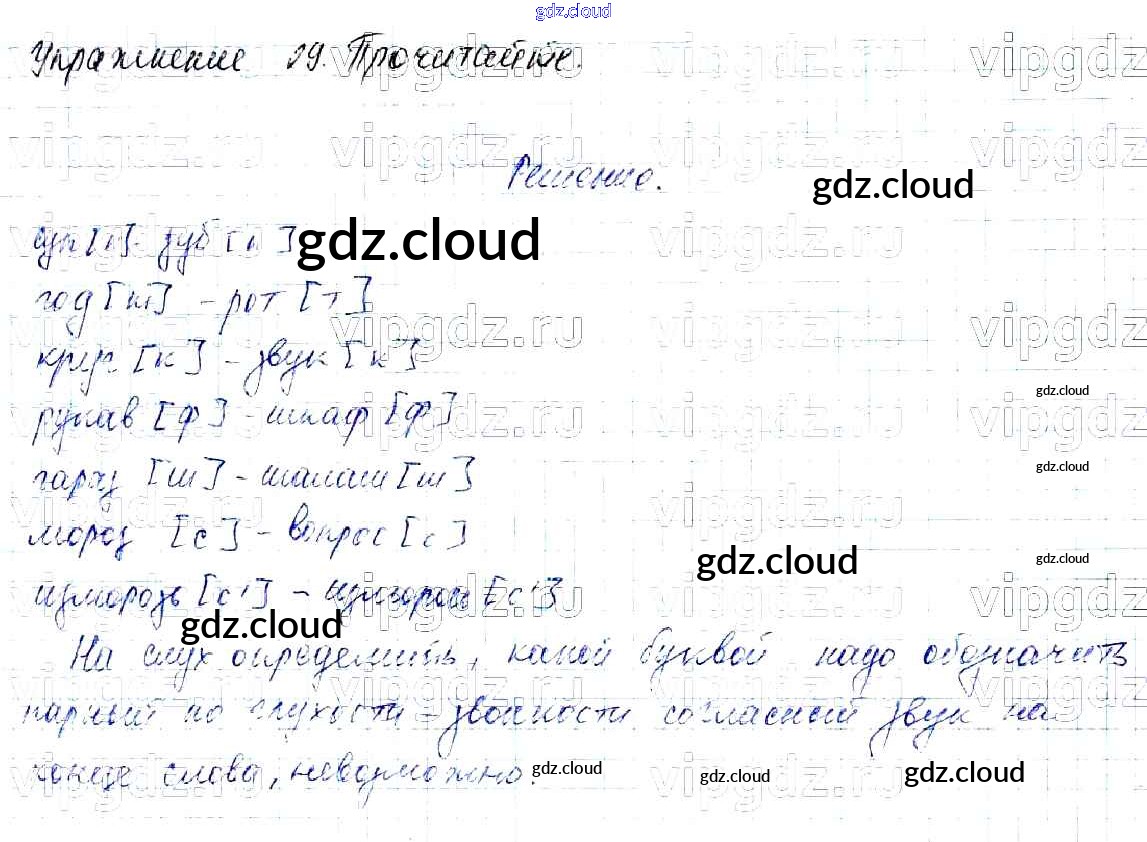 gdz.cloud
Упражнение 19. Прочитайте.
Решение.
gdz.cloud
суп [п] - зуб [п]
gdz.cloud
год [т] - рот [т]
круг [к] - звук [к]
gdz.cloud
рукав [ф] - шкаф [ф]
gdz.cloud
гараж [ш] - шалаш [ш]
мороз [с] - вопрос [с]
gdz.cloud
gdz.cloud
изморозь [с'] - [с']
gdz.cloud
На слух определить, какой буквой надо обозначить
парный по глухости - звонкости согласный звук на
конце слова, невозможно.
gdz.cloud
gdz.cloud
gdz.cloud
vipgdz.ru